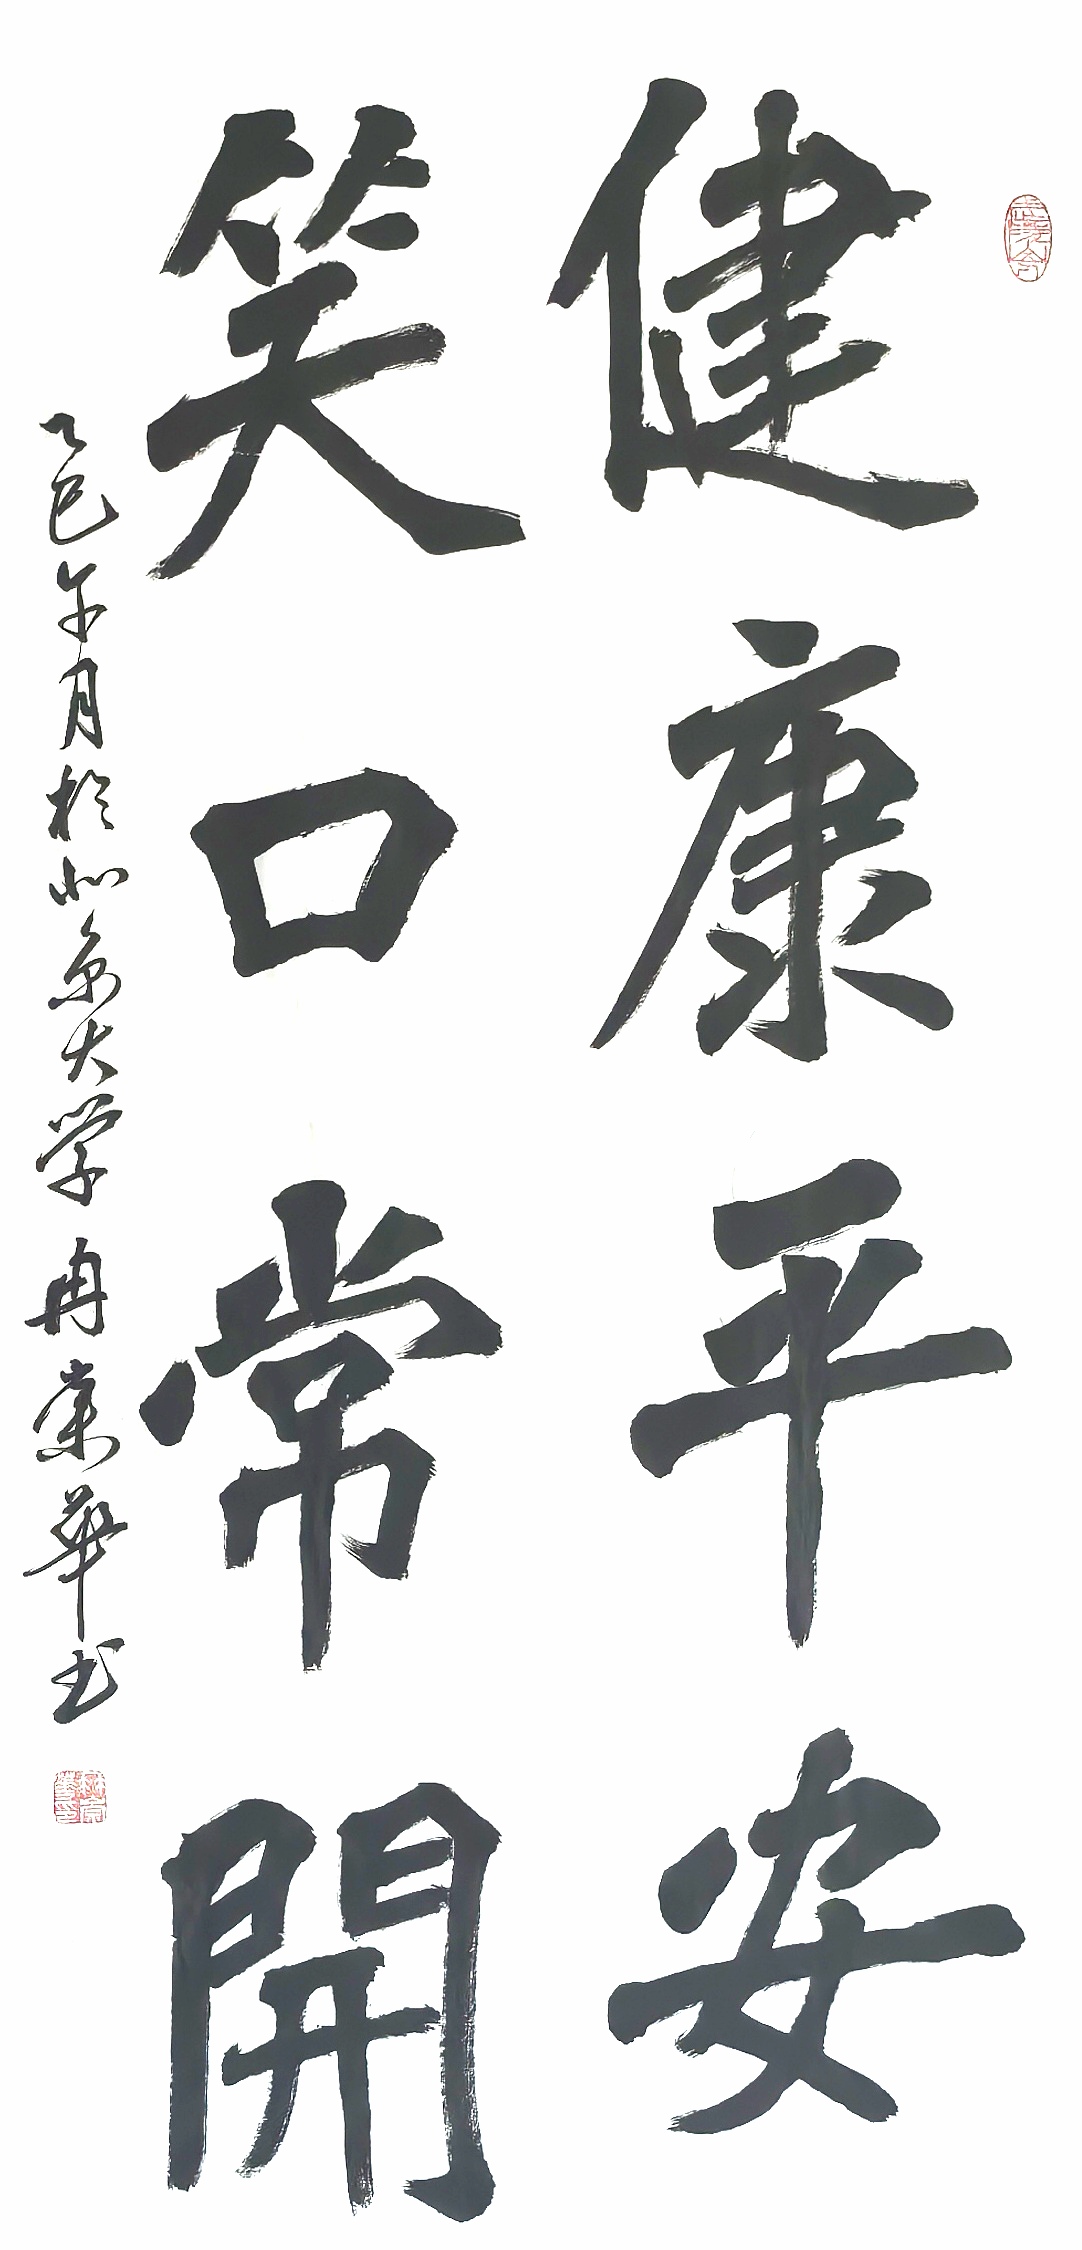 健康平安
笑口常開
乙巳午月於北京大学冉崇華书